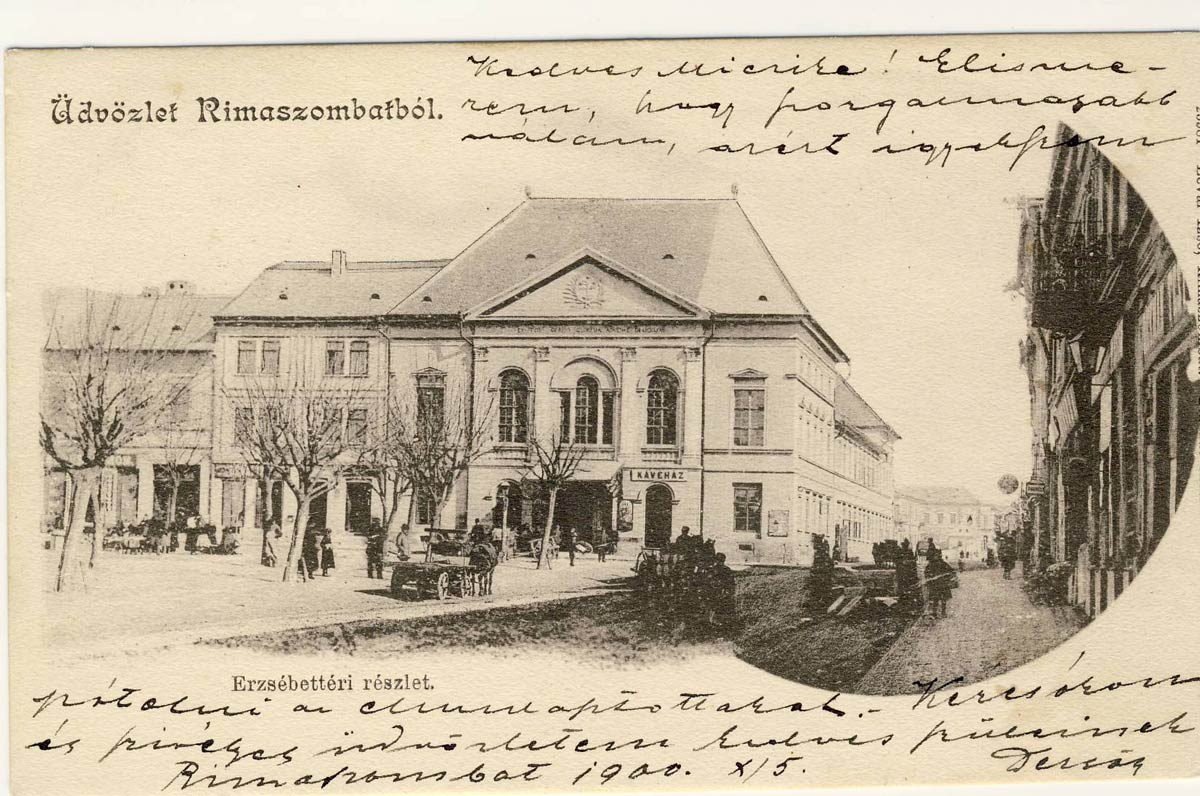 Üdvözlet Rimaszombatból.
Kedves Miczike! Elisme-
rem, hogy szorgalmasabb
nálam, azért igyekszem
KÁVÉHÁZ
Erzsébettéri részlet.
pótolni az elmulasztottakat.-
és szívélyes üdvözletem kedves szüleinek
Rimaszombat 1900. X/5.